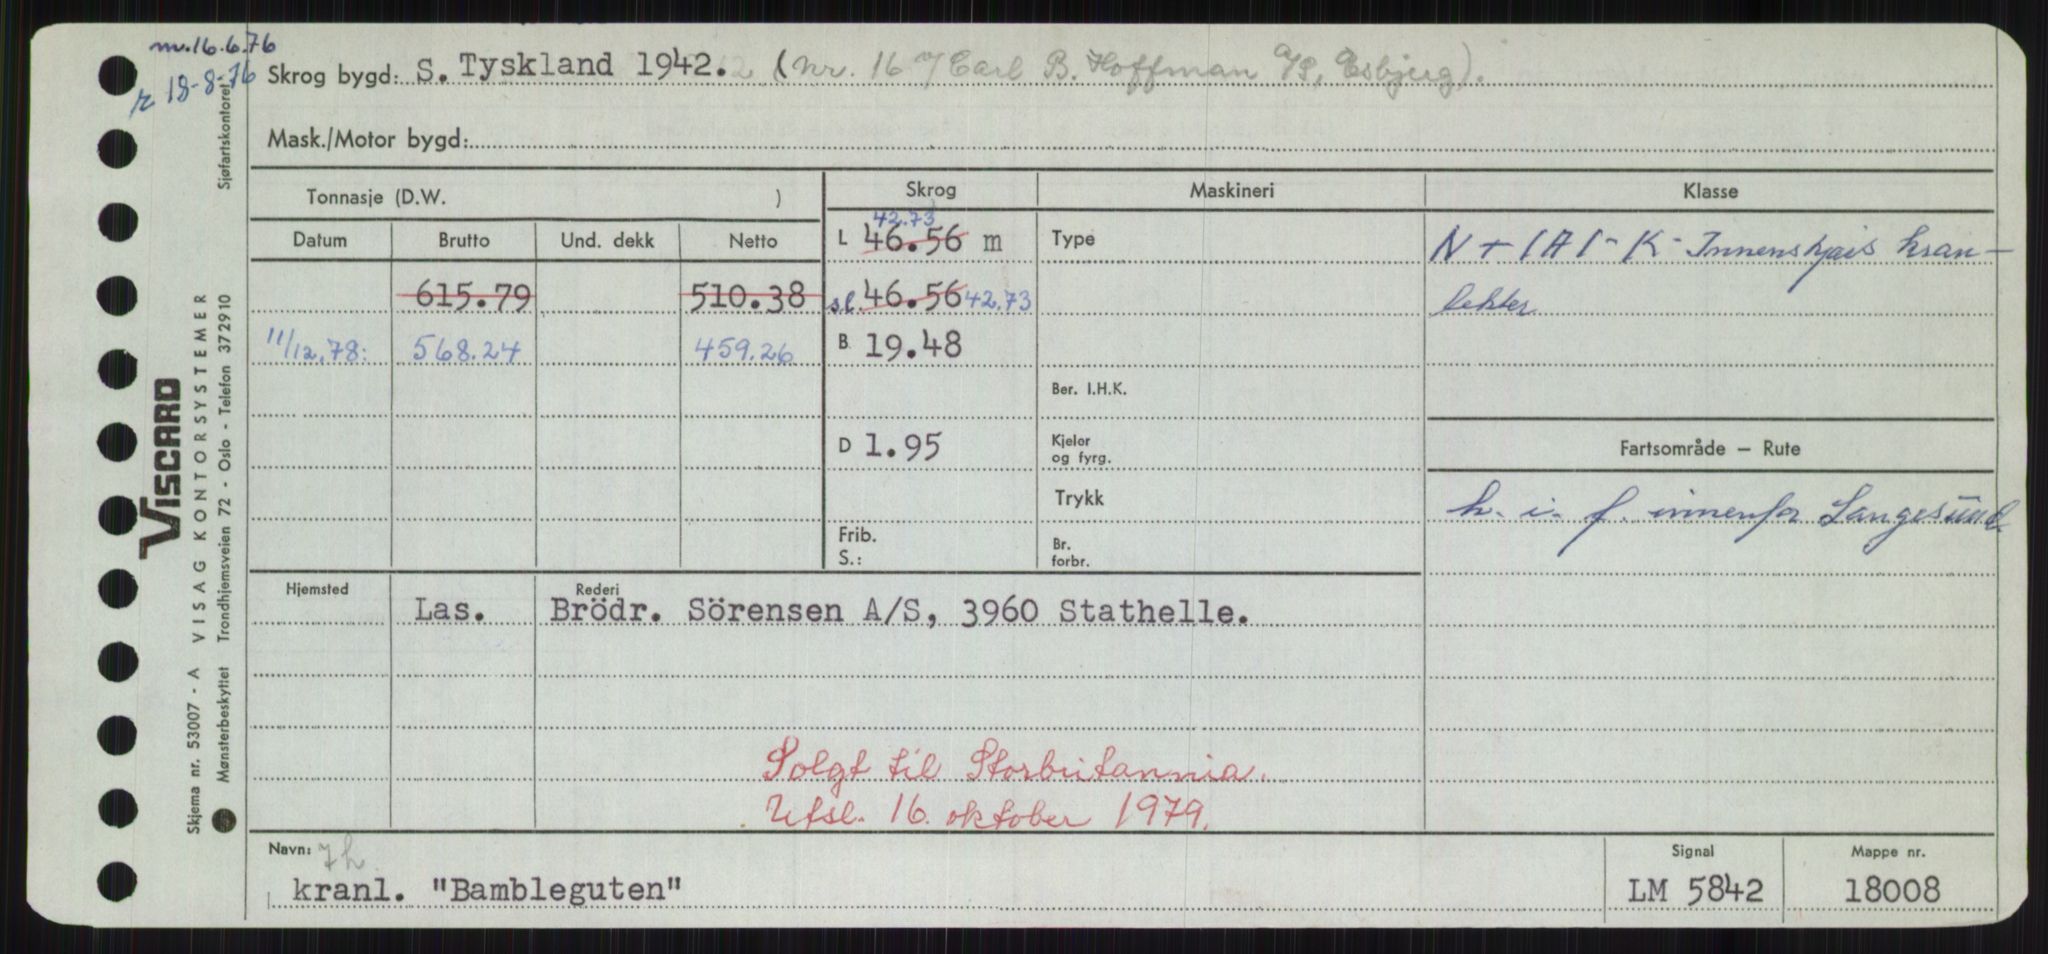 nv. 16.6.76
r 18-8-76
Skrog bygd: S. Tyskland 1942. (nr. 167 Carl B. Hoffman A/S, Esbjerg).
Mask./Motor bygd:
Tonnasje (D.W. )
Skrog Maskineri Klasse
Datum Brutto Und. dekk Netto
42.73
L 46.56 m Type N + 1A1 - K - Innenskjærs kran-
615.79 510.38 sl. 46.56 42.73 lekter
11/12.78: 568.24 459.26 B 19.48
Ber. I.H.K.
D 1.95 Kjeler og fyrg. Fartsområde — Rute
Trykk h. i. f. innenfor Langesund.
Frib.
S.: Br. forbr.
Hjemsted Rederi
Las. Brödr. Sörensen A/S, 3960 Stathelle.
Solgt til Storbritannia.
Utsl. 16. oktober 1979.
Navn: 7h Signal Mappe nr.
kranl. "Bambleguten" LM 5842 18008
VISCARD
Skjema nr. 53007 - A VISAG KONTORSYSTEMER
Mønsterbeskyttet Trondhjemsveien 72 - Oslo - Telefon 372910 Sjøfartskontoret